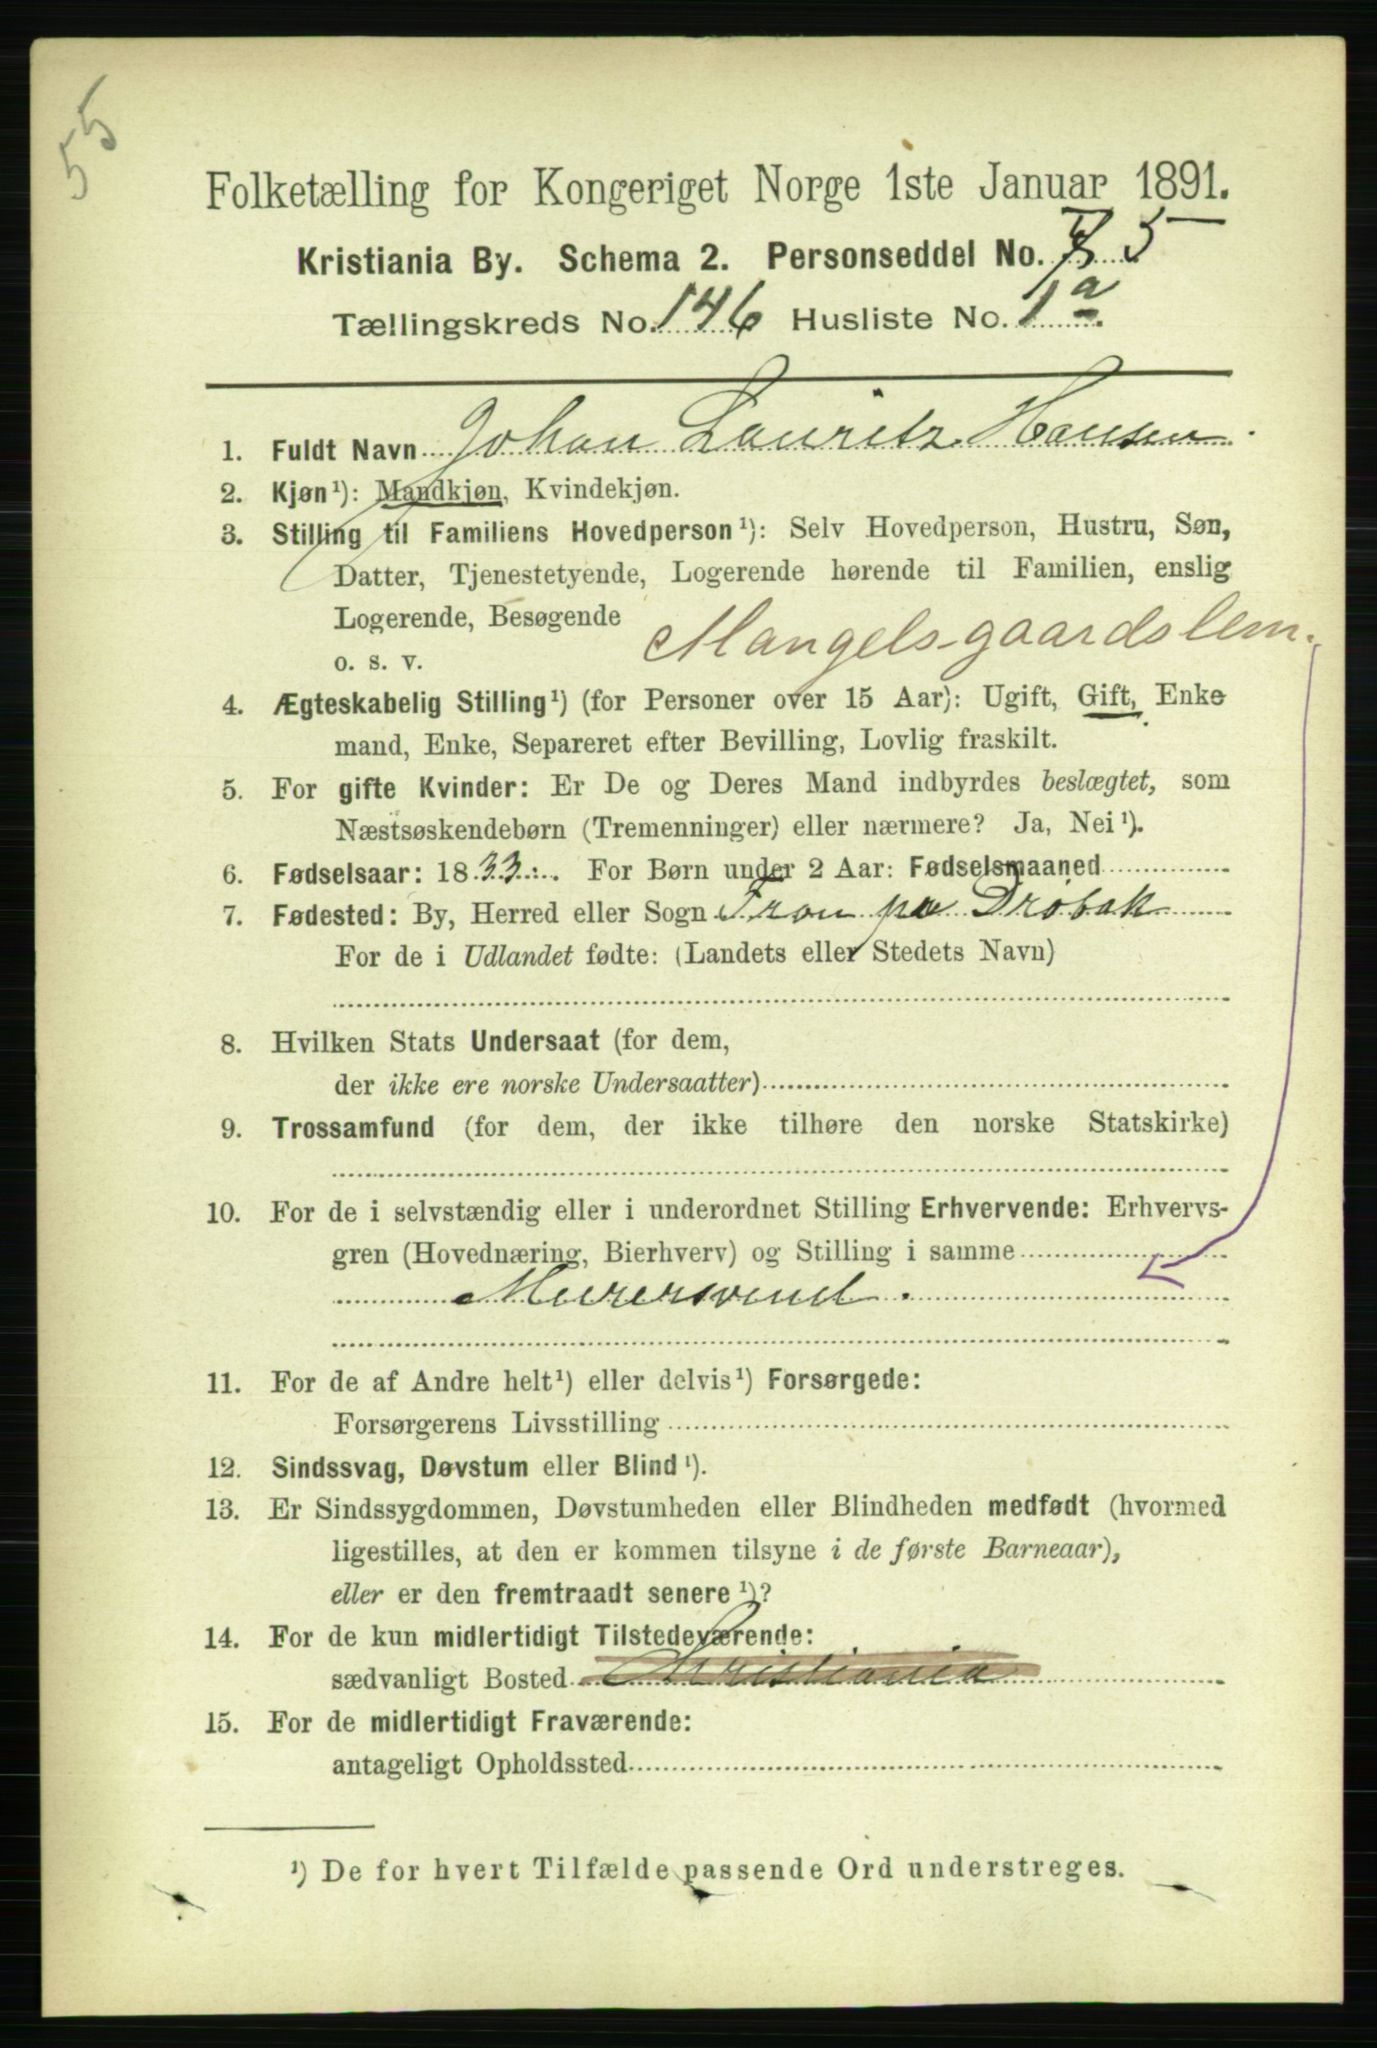 55
Folketælling for Kongeriget Norge 1ste Januar 1891.
Kristiania By. Schema 2. Personseddel No. 5
Tællingskreds No. 146 Husliste No. 1a.
1. Fuldt Navn Johan Lauritz Hansen.
2. Kjøn¹): Mandkjøn, Kvindekjøn.
3. Stilling til Familiens Hovedperson¹): Selv Hovedperson, Hustru, Søn,
Datter, Tjenestetyende, Logerende hørende til Familien, enslig
Logerende, Besøgende
o. s. v. Mangelsgaardslem.
4. Ægteskabelig Stilling¹) (for Personer over 15 Aar): Ugift, Gift, Enke
mand, Enke, Separeret efter Bevilling, Lovlig fraskilt.
5. For gifte Kvinder: Er De og Deres Mand indbyrdes beslægtet, som
Næstsøskendebørn (Tremenninger) eller nærmere? Ja, Nei¹).
6. Fødselsaar: 1833. For Børn under 2 Aar: Fødselsmaaned
7. Fødested: By, Herred eller Sogn Fron pa Drøbak
For de i Udlandet fødte: (Landets eller Stedets Navn)
8. Hvilken Stats Undersaat (for dem,
der ikke ere norske Undersaatter)
9. Trossamfund (for dem, der ikke tilhøre den norske Statskirke)
10. For de i selvstændig eller i underordnet Stilling Erhvervende: Erhvervs-
gren (Hovednæring, Bierhverv) og Stilling i samme
Murersvend.
11. For de af Andre helt¹) eller delvis¹) Forsørgede:
Forsørgerens Livsstilling
12. Sindssvag, Døvstum eller Blind¹).
13. Er Sindssygdommen, Døvstumheden eller Blindheden medfødt (hvormed
ligestilles, at den er kommen tilsyne i de første Barneaar),
eller er den fremtraadt senere¹)?
14. For de kun midlertidigt Tilstedeværende:
sædvanligt Bosted Christiania
15. For de midlertidigt Fraværende:
antageligt Opholdssted
¹) De for hvert Tilfælde passende Ord understreges.